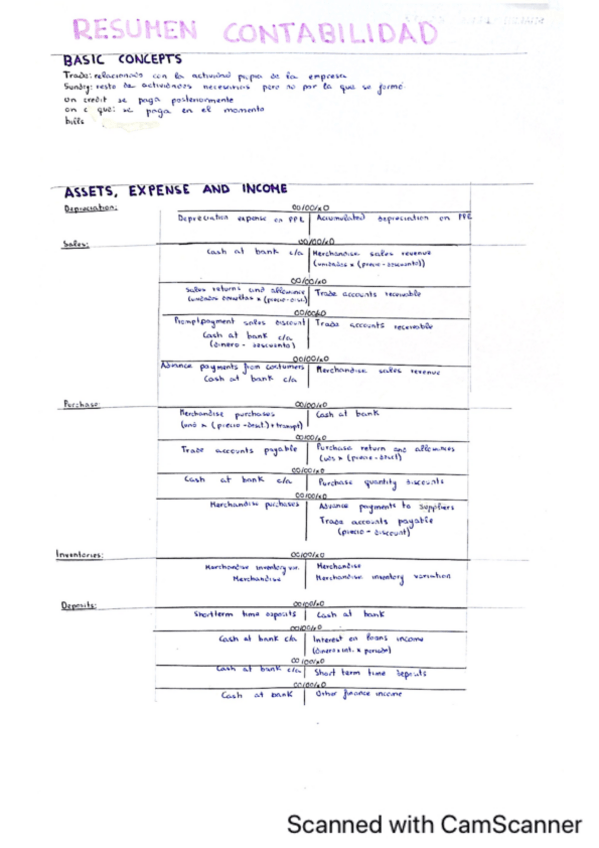 RESUMEN CONTABILIDAD
BASIC CONCEPTS
Trade: relacionado con la actividad propia de la empresa
Sundry: resto de actividades necesarias pero no por la que se formó
on credit se paga posteriormente
on c que: se paga en el momento
bills
ASSETS, EXPENSE AND INCOME
Depreciation:
00/00/x0
Depreciation expense on PPE Accumulated depreciation on PPE
Sales:
00/00/x0
Cash at bank c/a Merchandise sales revenue
(unidades x (precio-descuento))
00/00/x0
Sales returns and allowance Trade accounts receivable
(unidades devueltas x (precio-dist))
00/00/x0
Promptpayment sales discount Trade accounts receivable
Cash at bank c/a
(dinero - descuento)
00/00/x0
Advance payments from costumers Merchandise sales revenue
Cash at bank c/a
Purchase:
00/00/x0
Merchandise purchases Cash at bank
(und x (precio-desct)+transpt)
00/00/x0
Trade accounts payable Purchase return and allowances
(uds x (precio-desct))
00/00/x0
Cash at bank c/a Purchase quantity discounts
00/00/x0
Merchandise purchases Advance payments to suppliers
Trade accounts payable
(precio - discount)
Inventories:
00/00/x0
Merchandise inventory var. Merchandise
Merchandise Merchandise inventory variation
Deposits:
00/00/x0
Short term time deposits Cash at bank
00/00/x0
Cash at bank c/a Interest on loans income
(dinero x int. x periodo)
00/00/x0
Cash at bank c/a Short term time deposits
00/00/x0
Cash at bank Other finance income
Scanned with CamScanner